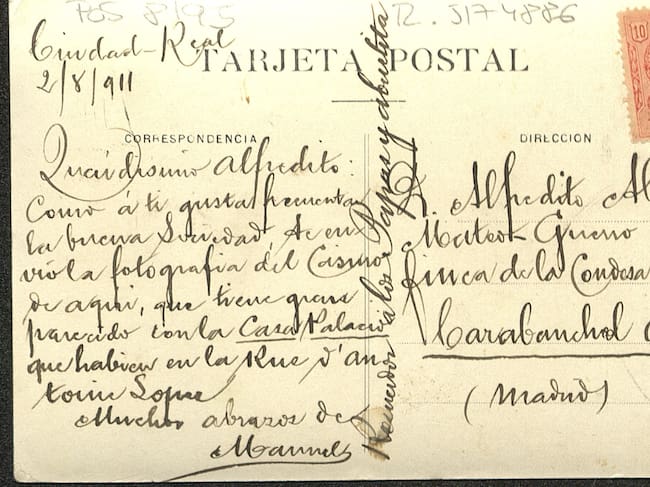 POS 8195
R. 3174886
Ciudad-Real
2/8/911
TARJETA POSTAL
CORRESPONDENCIA
Queridisimo Alfredito:
Como á ti gusta frecuentar
la buena Sociedad, te en
vio la fotografia del Casino
de aqui, que tiene gran
parecido con la Casa Palacio
que habien en la Rue d'An
toine Lopez
Muchos abrazos de
Manuel
Recuerdos á los Papas y abuelita
DIRECCION
D. Alfredito Al
Mateo-Guerro
finca de la Condesa
Carabanchel
(Madrid)
10